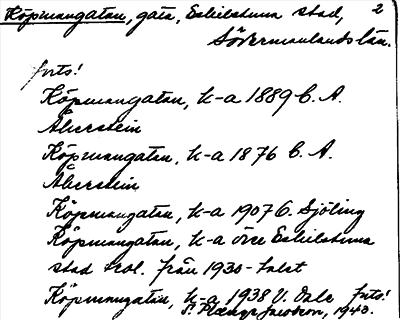 Köpmangatan, gata, Eskilstuna stad, 2
Södermanlands län.
forts!
Köpmangatan, k-a 1889 C. A.
Åberstein
Köpmangatan, k-a 1876 C. A.
Åberstein
Köpmangatan, k-a 1907 G. Sjöling
Köpmangatan, k-a övre Eskilstuna
stad trol. från 1930-talet
Köpmangatan, k-a 1938 V. Dale forts!
Jacobson, 1940.